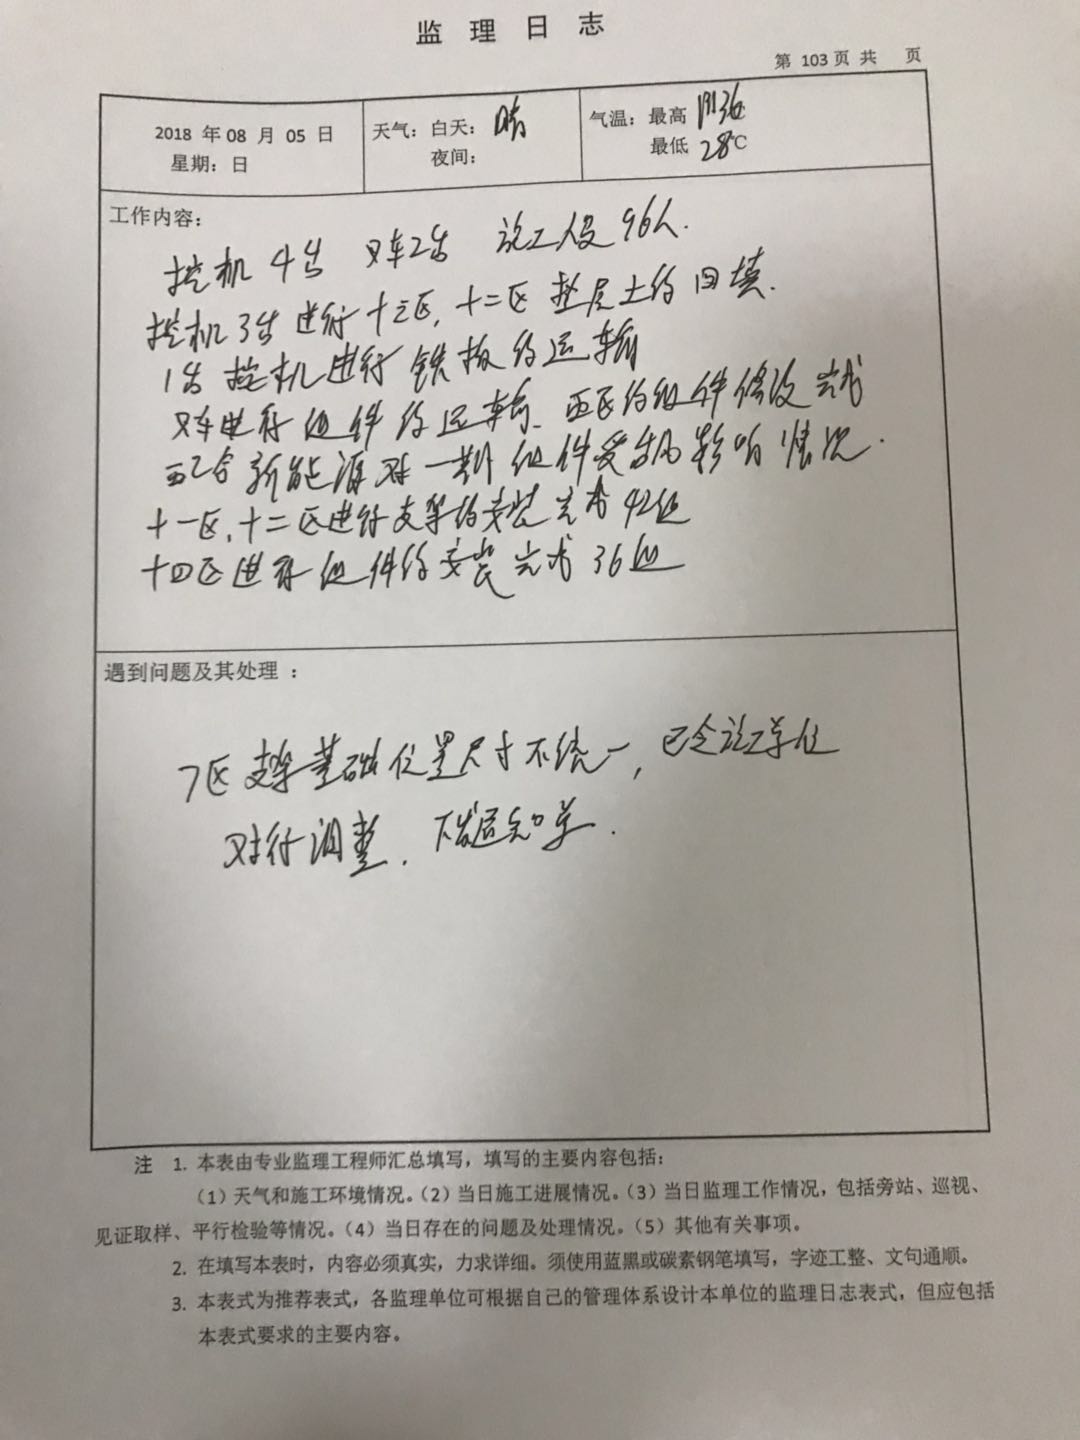 监 理 日 志
第 103 页 共 页
2018 年 08 月 05 日
星期：日
天气：白天：晴
夜间：
气温：最高 36
最低 28℃
工作内容：
挖机4台 叉车2台 施工人员96人.
挖机3台进行十三区,十二区垫层土的回填.
1台挖机进行铁板的运输
叉车进行组件的运输、西区的组件修改完成
配合新能源对一期组件受台风影响情况.
十一区,十二区进行支架的安装完成42组
十四区进行组件的安装完成36组
遇到问题及其处理：
7区支架基础位置尺寸不统一,已令施工单位
对行调整.下发通知单.
注 1. 本表由专业监理工程师汇总填写，填写的主要内容包括：
（1）天气和施工环境情况。（2）当日施工进展情况。（3）当日监理工作情况，包括旁站、巡视、
见证取样、平行检验等情况。（4）当日存在的问题及处理情况。（5）其他有关事项。
2. 在填写本表时，内容必须真实，力求详细。须使用蓝黑或碳素钢笔填写，字迹工整、文句通顺。
3. 本表式为推荐表式，各监理单位可根据自己的管理体系设计本单位的监理日志表式，但应包括
本表式要求的主要内容。